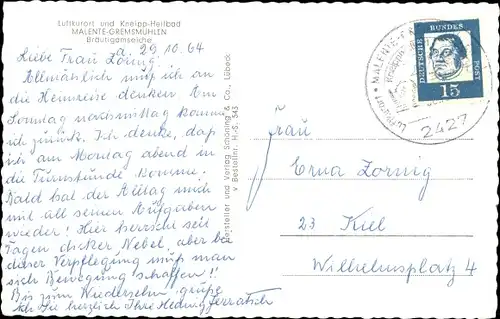 Luftkurort und Kneipp-Heilbad
MALENTE-GREMSMÜHLEN
Bräutigamseiche
a. 29.10.64
Liebe Frau Zornig.
Allmählich muß ich an
die Heimreise denken. Am
Sonntag nachmittag komme
ich zurück. Ich denke, daß
ich am Montag abend in
die Turnstunde komme.
Bald hat der Alltag mich
mit all seinen Aufgaben
wieder! Hier herrscht seit
Tagen dicker Nebel, aber bei
dieser Verpflegung muß man
sich Bewegung schaffen!!
Bis zum Wiedersehn grüße
ich Sie herzlich Ihre Hedwig
Hersteller und Verlag Schöning & Co., Lübeck
Bestellnr. H.-S. 343
DEUTSCHE BUNDESPOST
15
MALENTE-
Luftkurort
2427
Frau
Erna Zornig
23 Kiel
Wilhelmsplatz 4